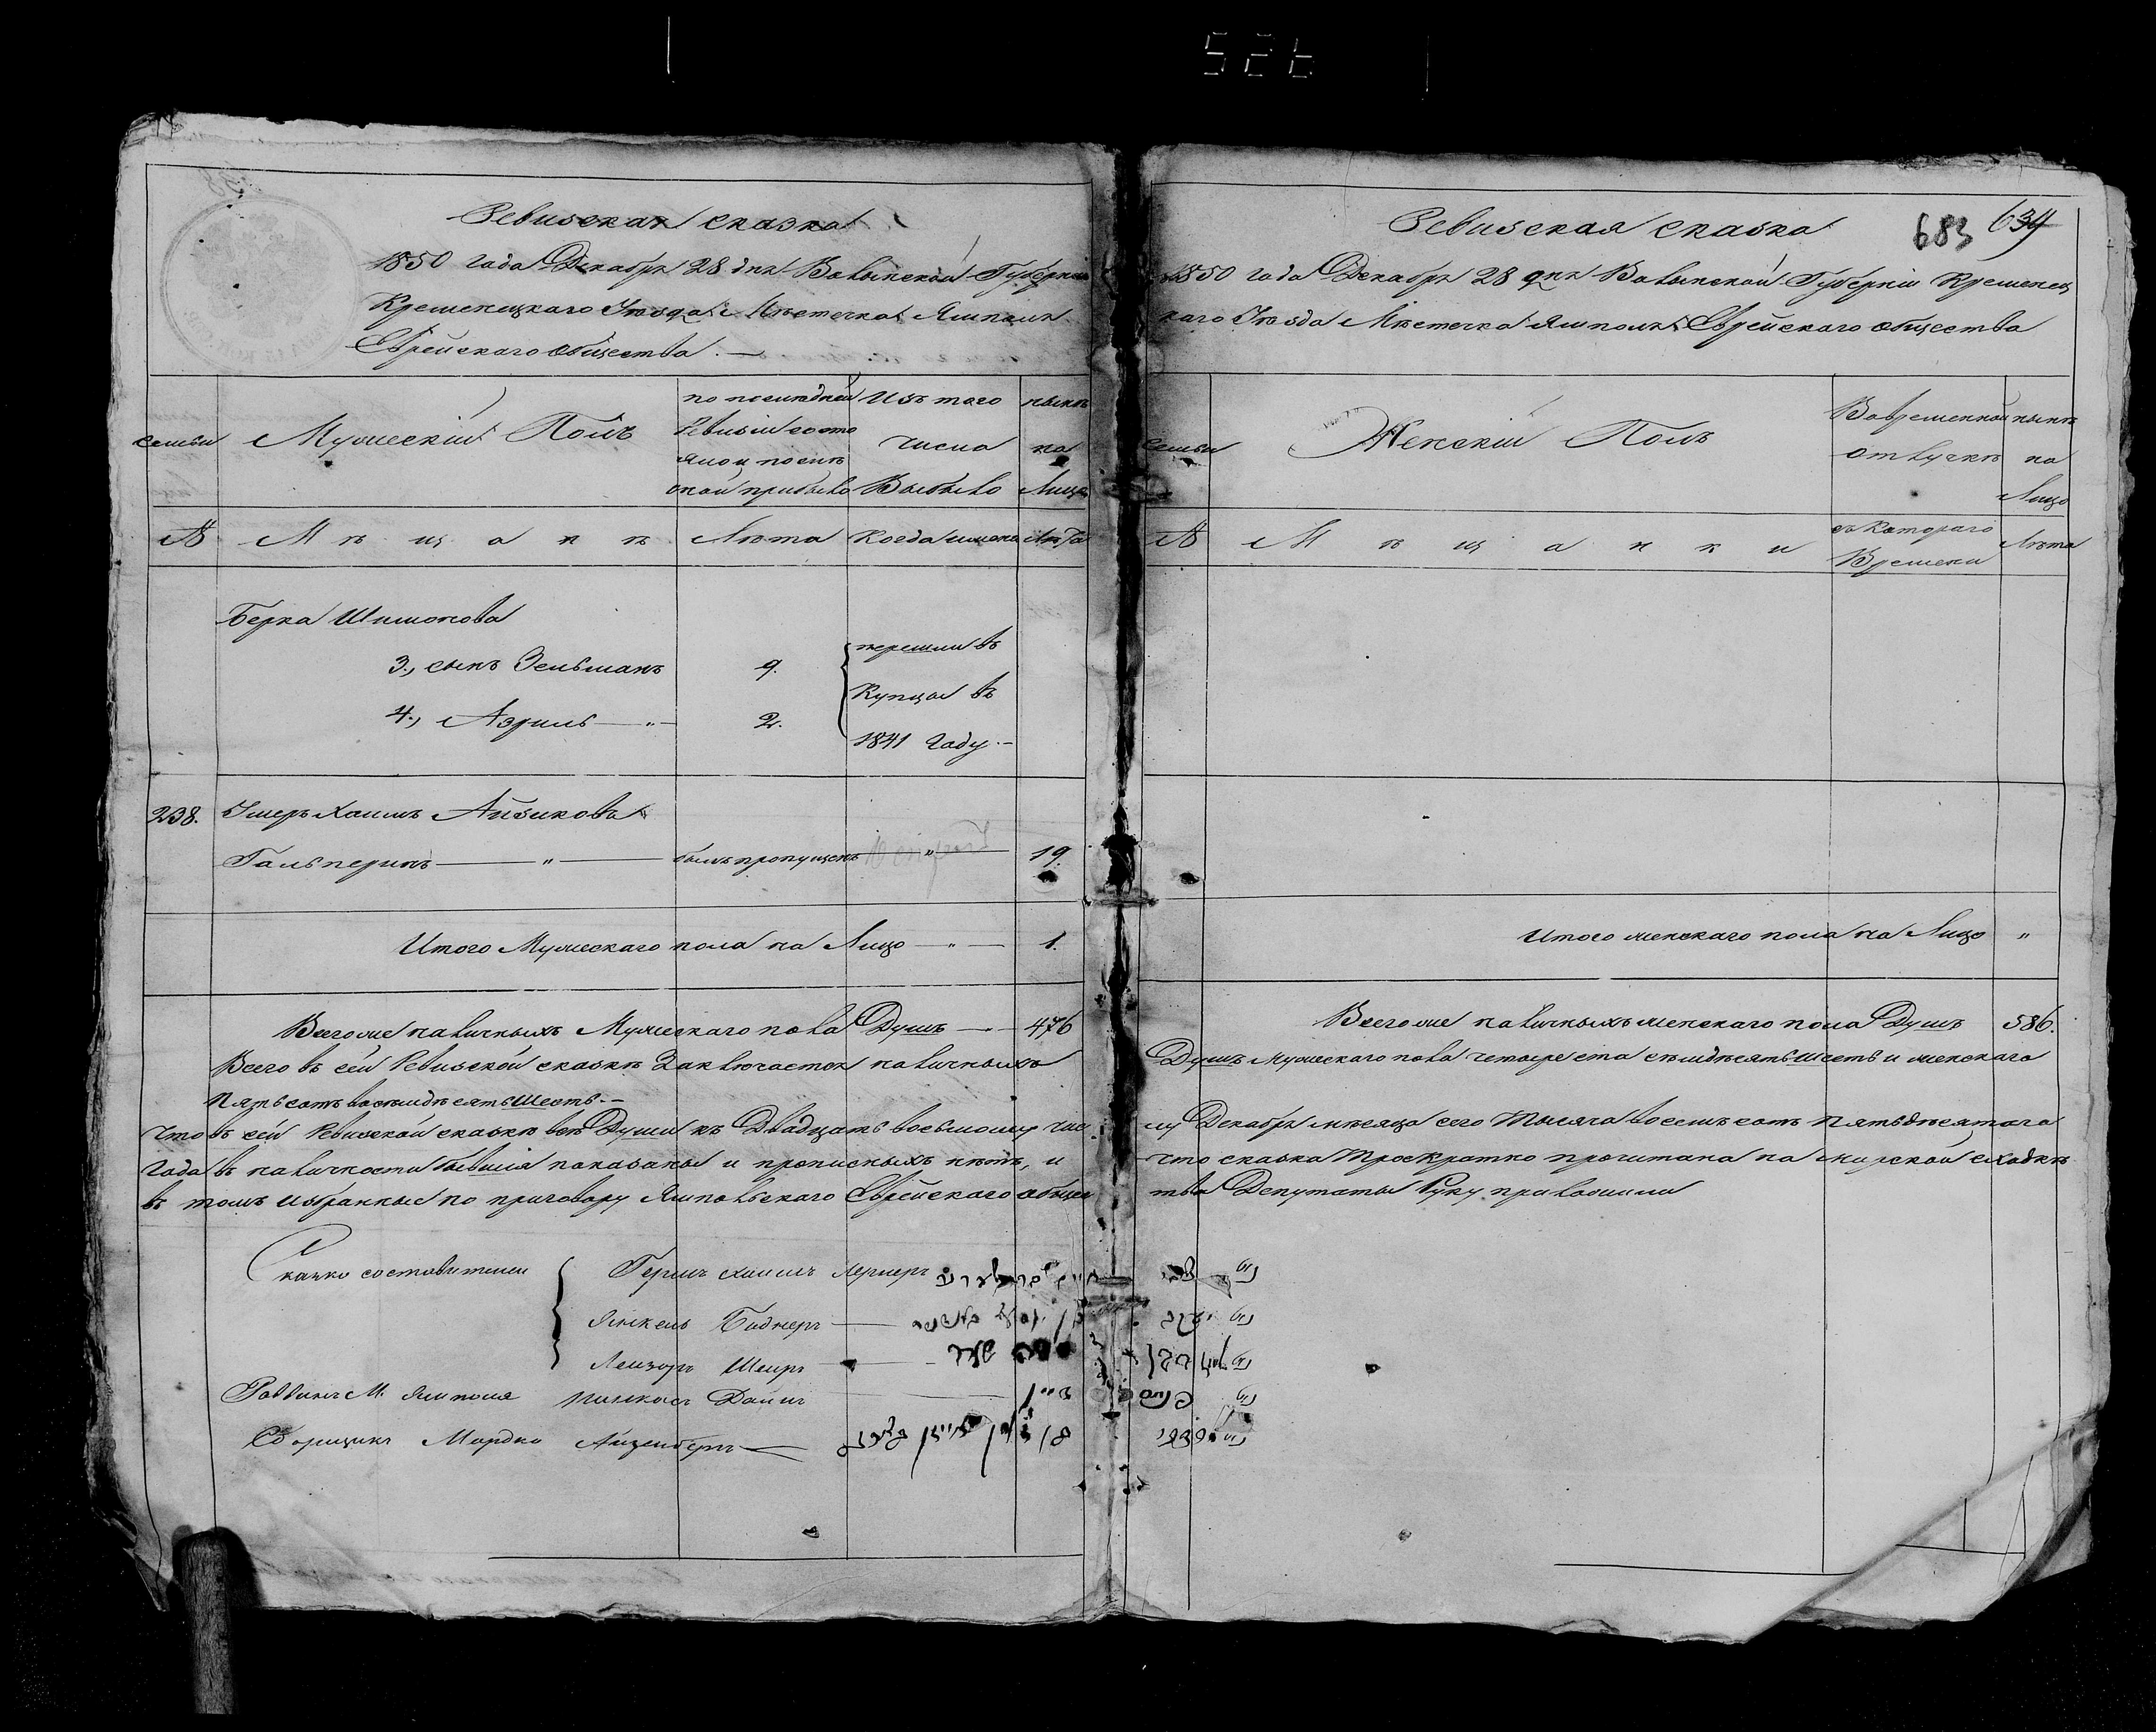 526
Ревизская сказка
1850 года Декабря 28 дня Волынской Губерніи
Кременецкаго Уѣзда Мѣстечка Ямполя
Еврейскаго общества. —
семьи
Мужескій Полъ
по последней Ревизіи состояло и после оной прибыло
Изъ того числа Выбыло
нынѣ на Лицо
№
Мѣщанѣ
Лѣта
Когда имянно
Лѣта
Берка Шимонова
3., сынъ Зельманъ 9.
4., Азриль — " — 2.
перешли въ
Купцы въ
1841 Году. —
238. Хаимъ Айзикова
Гальперинъ — " — былъ пропущенъ " 19.
Итого Мужескаго пола на Лицо — " — 1.
Всего же наличныхъ Мужескаго пола Душъ — 476
Всего въ сей Ревизской сказкѣ Заключается наличныхъ
Пятьсотъ восемдѣсятъ Шесть. —
Что въ сей Ревизской сказкѣ всѣ Души къ Двадцать восьмому чис
Года въ наличности бывшія показаны и прописныхъ нѣтъ, и
въ томъ избранные по приговору Ямпольскаго Еврейскаго общес
Сказко составители
Герш Хаимъ Лернеръ
Янкель Боднеръ
Лейзоръ Шеиръ
Раввинъ М. Ямполя Пинкасъ Даинъ
Сборщикъ Мордко Айзенбергъ
683 634
Ревизская сказка
1850 года Декабря 28 дня Волынской Губерніи Кременец
каго Уѣзда Мѣстечка Ямполя Еврейскаго общества
семьи
Женскій Полъ
Во временной отлучкѣ
нынѣ на Лицо
№
Мѣщанки
съ Котораго Времени
Лѣта
Итого женскаго пола на Лицо "
Всего же наличныхъ женскаго пола Душъ 586.
Душъ Мужескаго пола четыреста семдѣсятъ шесть и женскаго
лу Декабря мѣсяца сего тысяча восемъсотъ пятьдѣсятаго
что сказка Троекратно прочитана на мирской сходкѣ
тва Депутаты Руку приложили